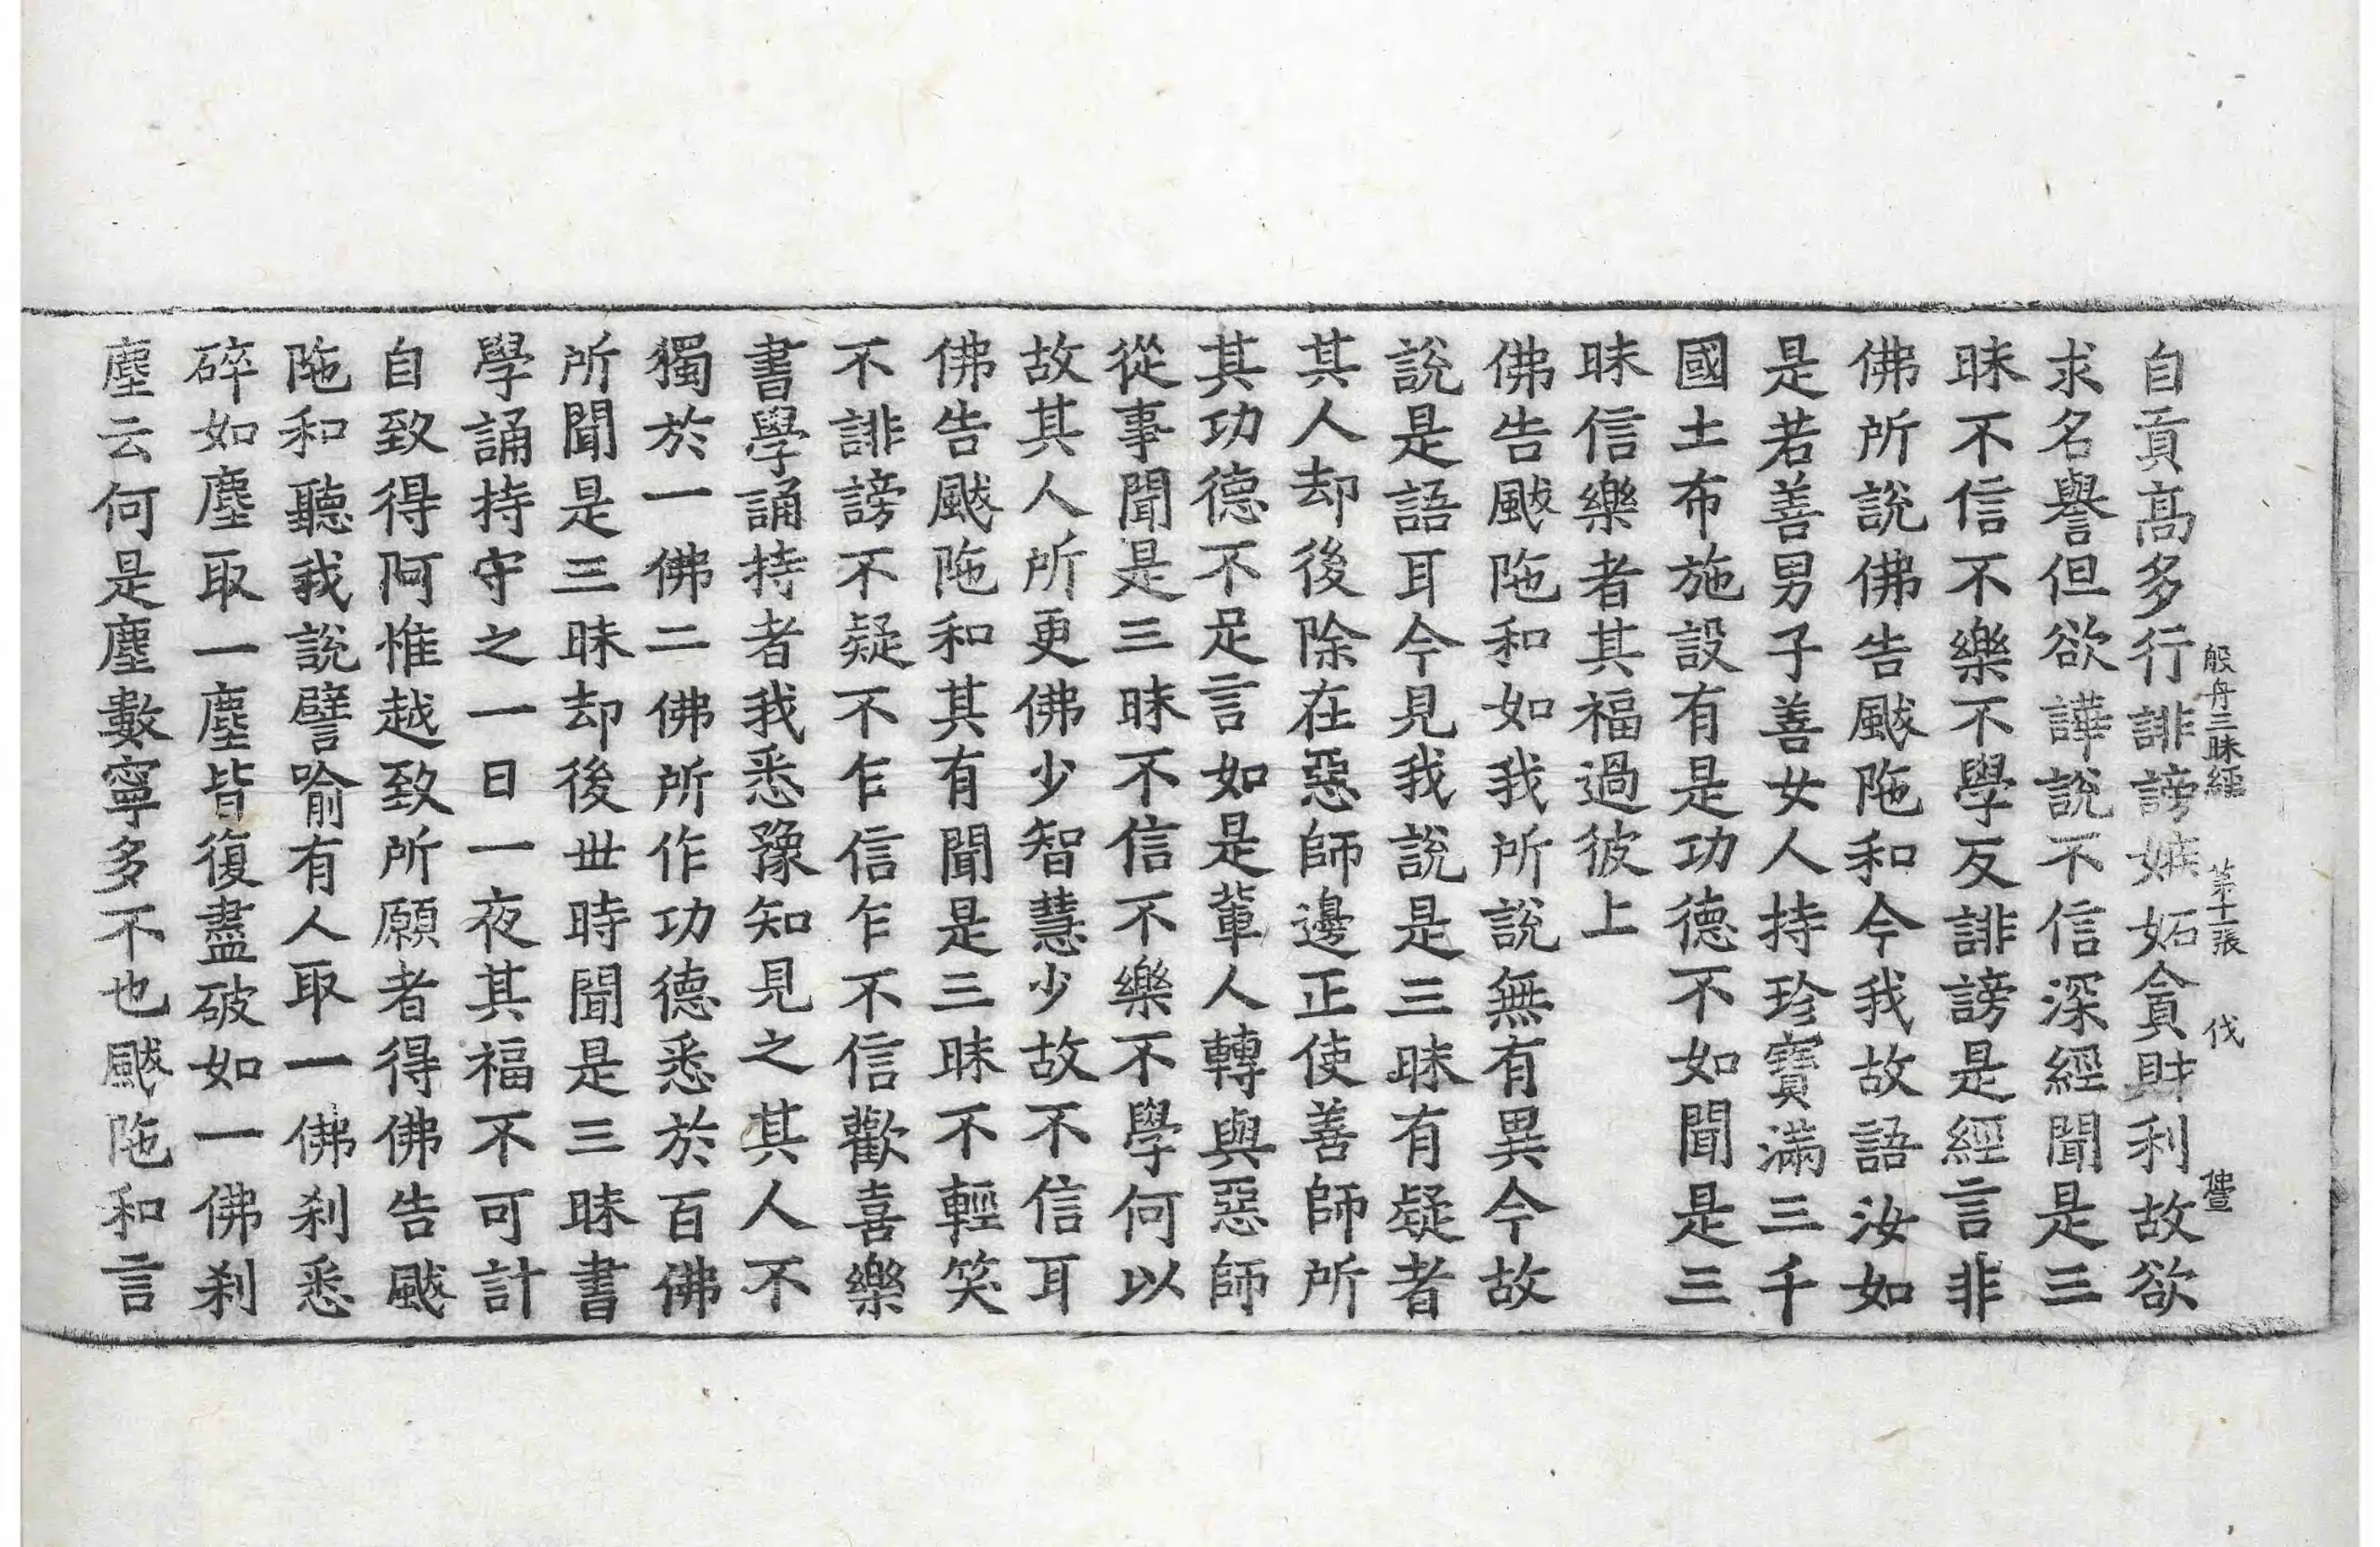 般舟三昧經 第十一張 伐
自貢高多行誹謗嫉妬貪財利故欲
求名譽但欲譁說不信深經聞是三
昧不信不樂不學反誹謗是經言非
佛所說佛告颰陁和今我故語汝如
是若善男子善女人持珍寶滿三千
國土布施設有是功德不如聞是三
昧信樂者其福過彼上
佛告颰陁和如我所說無有異今故
說是語耳今見我說是三昧有疑者
其人却後除在惡師邊正使善師所
其功德不足言如是輩人轉與惡師
從事聞是三昧不信不樂不學何以
故其人所更佛少智慧少故不信耳
佛告颰陁和其有聞是三昧不輕笑
不誹謗不疑不乍信乍不信歡喜樂
書學誦持者我悉豫知見之其人不
獨於一佛二佛所作功德悉於百佛
所聞是三昧却後世時聞是三昧書
學誦持守之一日一夜其福不可計
自致得阿惟越致所願者得佛告颰
陁和聽我說譬喻有人取一佛刹悉
碎如塵取一塵皆復盡破如一佛刹
塵云何是塵數寧多不也颰陁和言